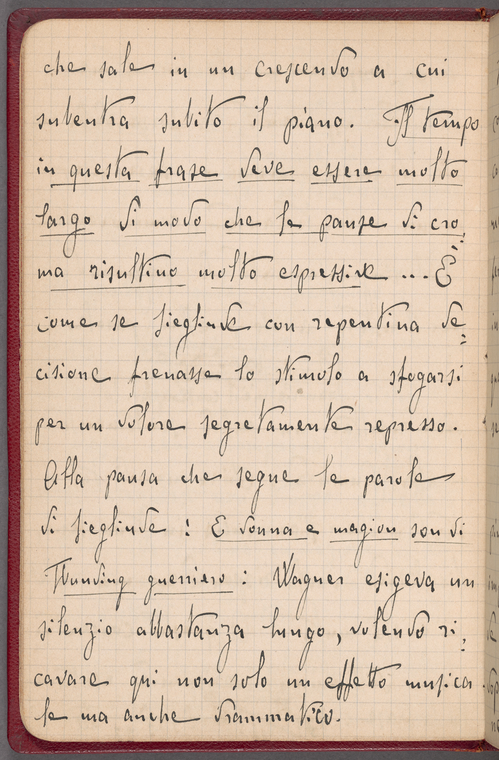 che sale in un crescendo a cui
subentra subito il piano. Il tempo
in questa frase deve essere molto
largo di modo che le pause di cro-
ma risultino molto espressive ... È
come se Sieglinde con repentina de-
cisione frenasse lo stimolo a sfogarsi
per un dolore segretamente represso.
Alla pausa che segue le parole
di Sieglinde: E donna e magion son di
Hunding guerriero: Wagner esigeva un
silenzio abbastanza lungo, volendo ri-
cavare qui non solo un effetto musica-
le ma anche drammatico.